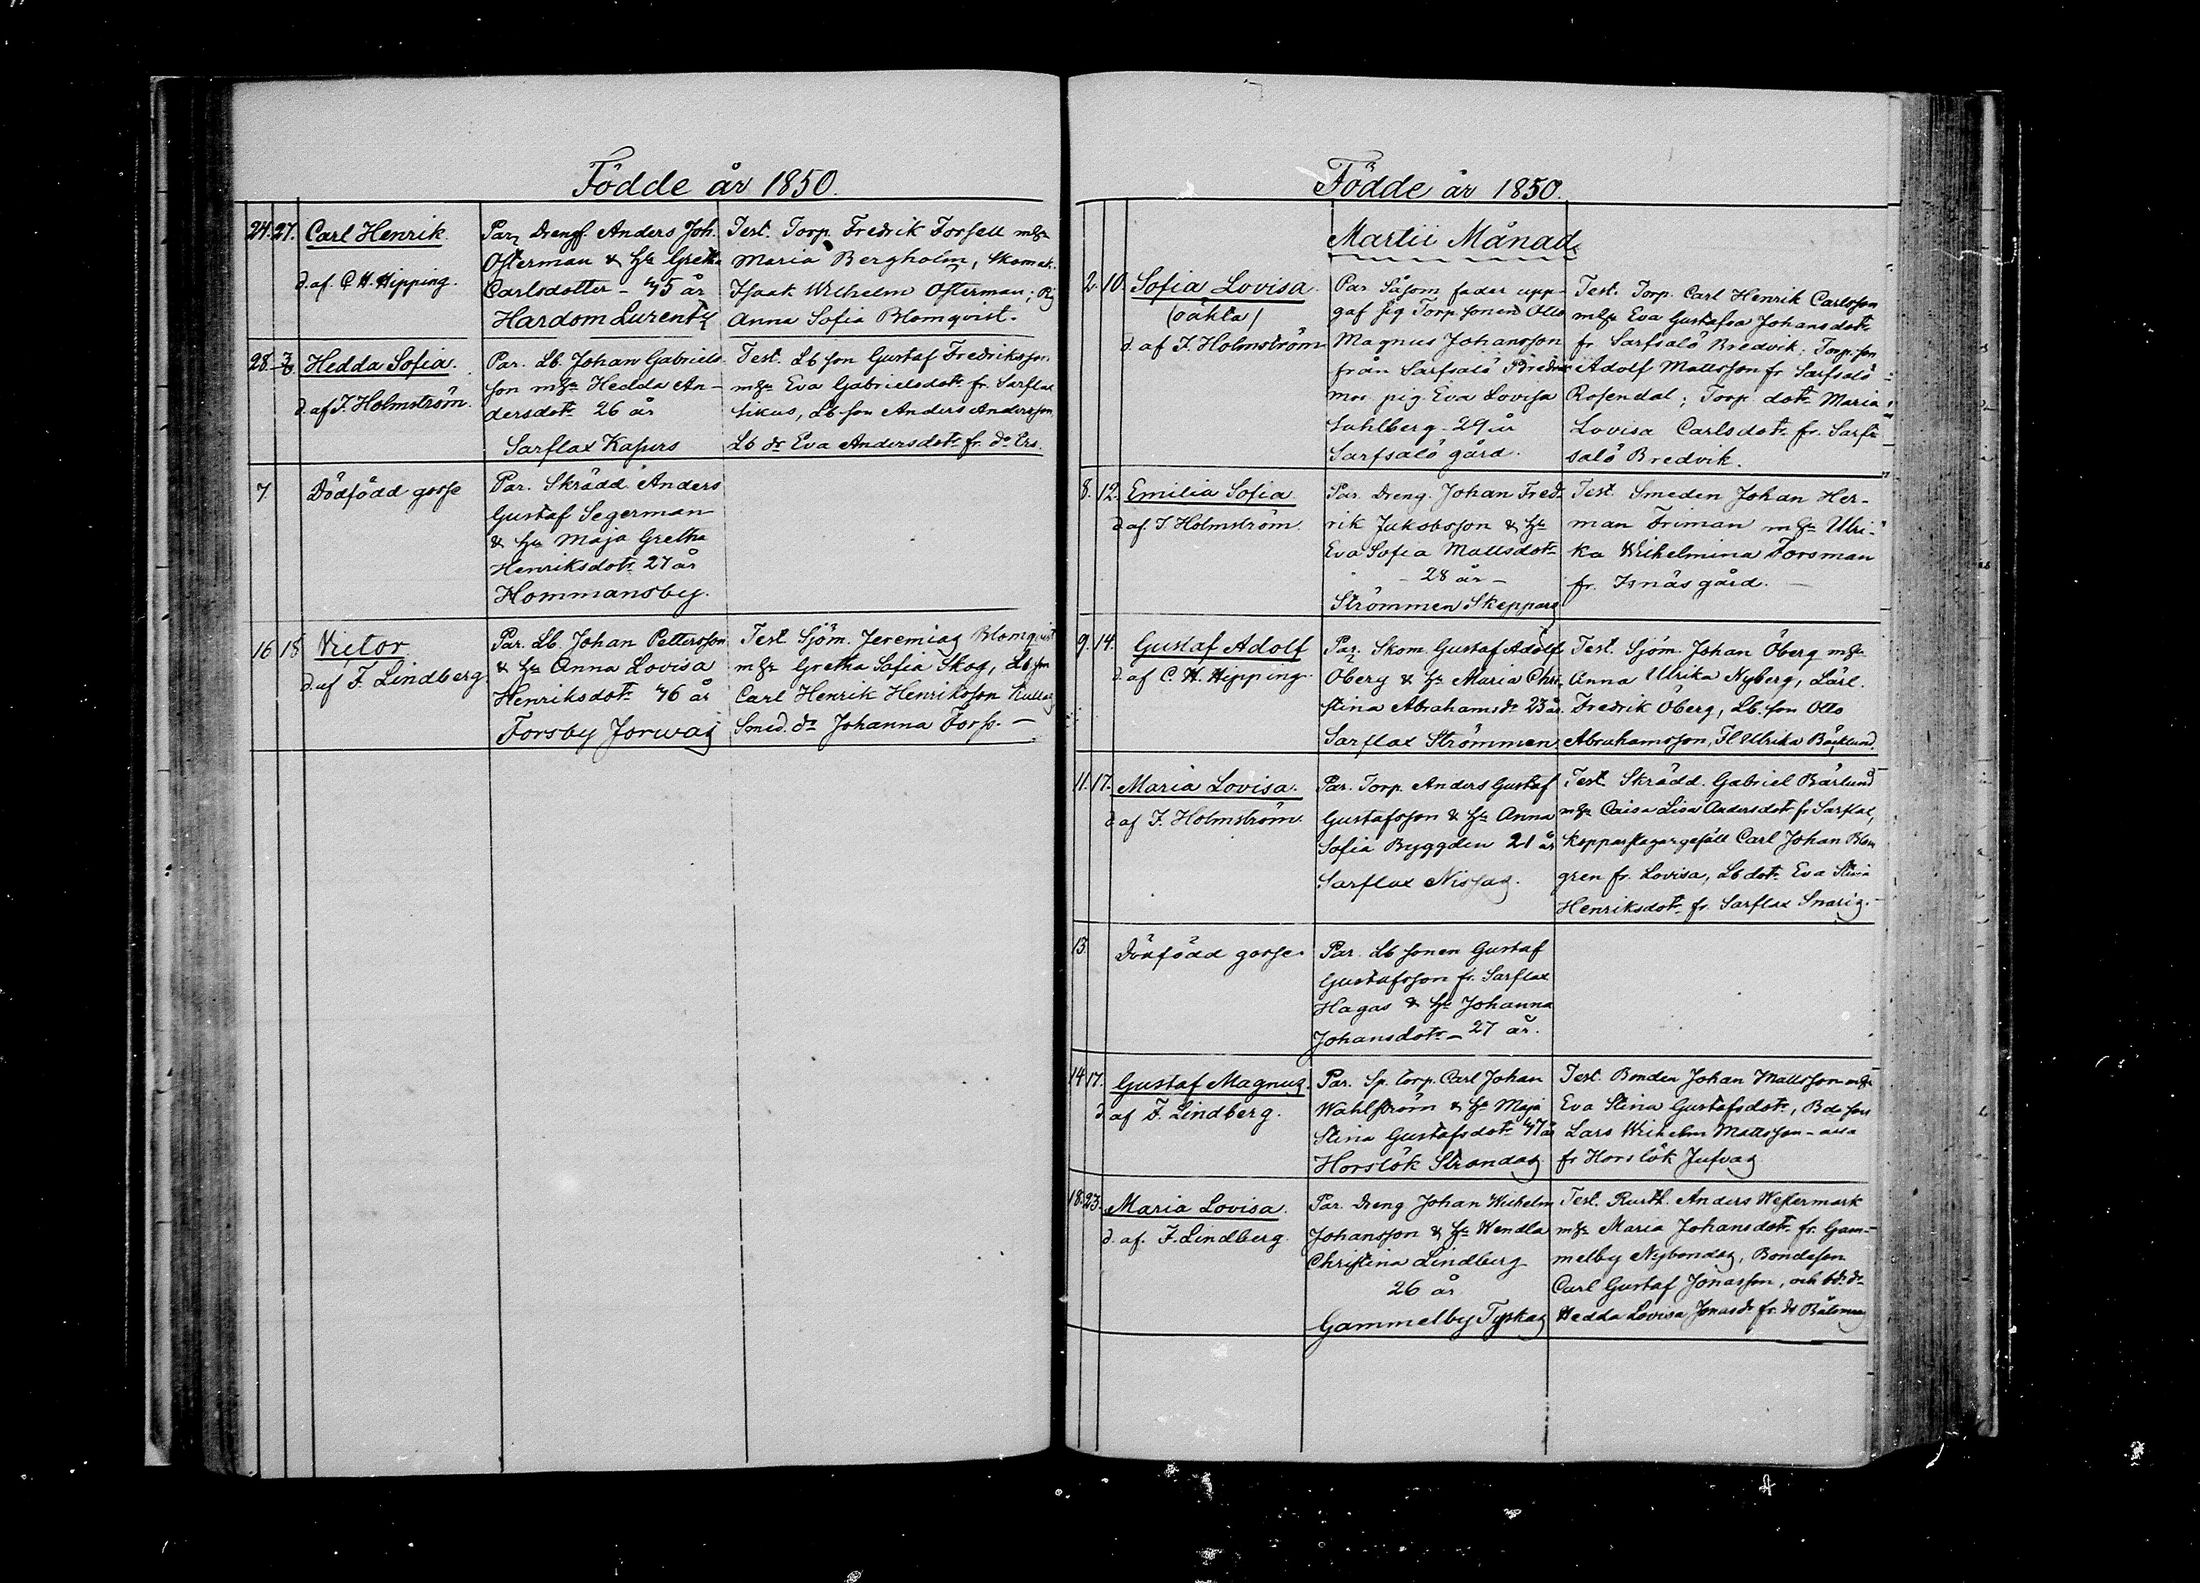 Födde år 1850.
24. 27. Carl Henrik.
d. af. C. H. Hipping.
Par. Dreng. Anders Joh.
Österman & h:u Greta
Carlsdotter - 45 år
Hardom Lurents
Test. Torp. Fredrik Forsell m h:u
Maria Bergholm, Skomak.
Isaak Wilhelm Österman; Pig
Anna Sofia Blomqvist.
28. 3/3 Hedda Sofia.
d. af. F. Holmström.
Par. Lb. Johan Gabriels
son m h:u Hedda An-
dersdotr 26 år
Sarflax Kapurs
Test. Lb son Gustaf Fredriksson
m h:u Eva Gabrielsdotr fr. Sarflax
Sikus, Lb son Anders Andersson
Lb dr Eva Andersdotr fr. do Ers.
7 Dödfödd gosse
Par. Skrädd. Anders
Gustaf Segerman
& h:u Maja Gretha
Henriksdotr 27 år
Hommansby.
16 18 Victor
d. af F. Lindberg
Par. Lb. Johan Pettersson
& h:u Anna Lovisa
Henriksdotr 46 år
Forsby Jorwas
Test. Sjöm. Jeremias Blomqvist
m h:u Gretha Sofia Skog, Lb son
Carl Henrik Henriksson Kullas
Smed. dr Johanna Forss. -
Födde år 1850.
Martii Månad.
2. 10. Sofia Lovisa.
(oäkta)
d. af F. Holmström
Par. Såsom fader upp-
gaf sig Torp. sonen Otto
Magnus Johansson
från Sarfsalö Bredvik
mor pig. Eva Lovisa
Sahlberg - 29 år
Sarfsalö gård.
Test. Torp. Carl Henrik Carlsson
m h:u Eva Gustafva Johansdotr
fr. Sarfsalö Bredvik; Torp. son
Adolf Mattsson fr. Sarfsalö
Rosendal; Torp. dotr Maria
Lovisa Carlsdotr fr. Sarf-
salö Bredvik.
8. 12. Emilia Sofia
d. af. F. Holmström.
Par. Dreng. Johan Fred-
rik Jakobsson & h:u
Eva Sofia Mattsdotr
- 28 år -
Strömmen Skeppars
Test. Smeden Johan Her-
man Friman m h:u Ulri-
ka Wilhelmina Forsman
fr. Isnäs gård. -
9. 14. Gustaf Adolf
d. af C. H. Hipping.
Par. Skom. Gustaf Adolf
Öberg & h:u Maria Chri-
stina Abrahamsdr 23 år.
Sarflax Strömmen
Test. Sjöm. Johan Öberg m h:u
Anna Ulrika Nyberg, Lärl.
Fredrik Öberg, Lb. son Otto
Abrahamsson, Fl Ulrika Bäcklund
11. 17. Maria Lovisa.
d. af F. Holmström.
Par. Torp. Anders Gustaf
Gustafsson & h:u Anna
Sofia Byggden 21 år
Sarflax Nissas.
Test. Skrädd. Gabriel Bärlund
m h:u Caisa Lisa Andersdotr fr. Sarflax,
kopparslagargesäll Carl Johan Blom
gren fr. Lovisa, Lb dotr Eva Stina
Henriksdotr fr. Sarflax Snarig. -
13. Dödfödd gosse.
Par. Lb sonen Gustaf
Gustafsson fr. Sarflax
Hagas & h:u Johanna
Johansdotr - 27 år.
14 17. Gustaf Magnus.
d. af F. Lindberg.
Par. Sp. torp. Carl Johan
Wahlström & h:u Maja
Stina Gustafsdotr 47 år
Horslök Strandas
Test. Bonden Johan Mattsson m h:u
Eva Stina Gustafsdotr, Bde son
Lars Wilhelm Mattsson - alla
fr Horslök Jufvas
18. 23. Maria Lovisa.
d. af. F. Lindberg.
Par. Dreng Johan Wilhelm
Johansson & h:u Wendla
Christina Lindberg
26 år
Gammelby Tyskas
Test. Rusth. Anders Westermark
m h:u Maria Johansdotr fr. Gam-
melby Nybondas, Bondeson
Carl Gustaf Jonasson, och bde dr
Hedda Lovisa Jonasdr fr. do